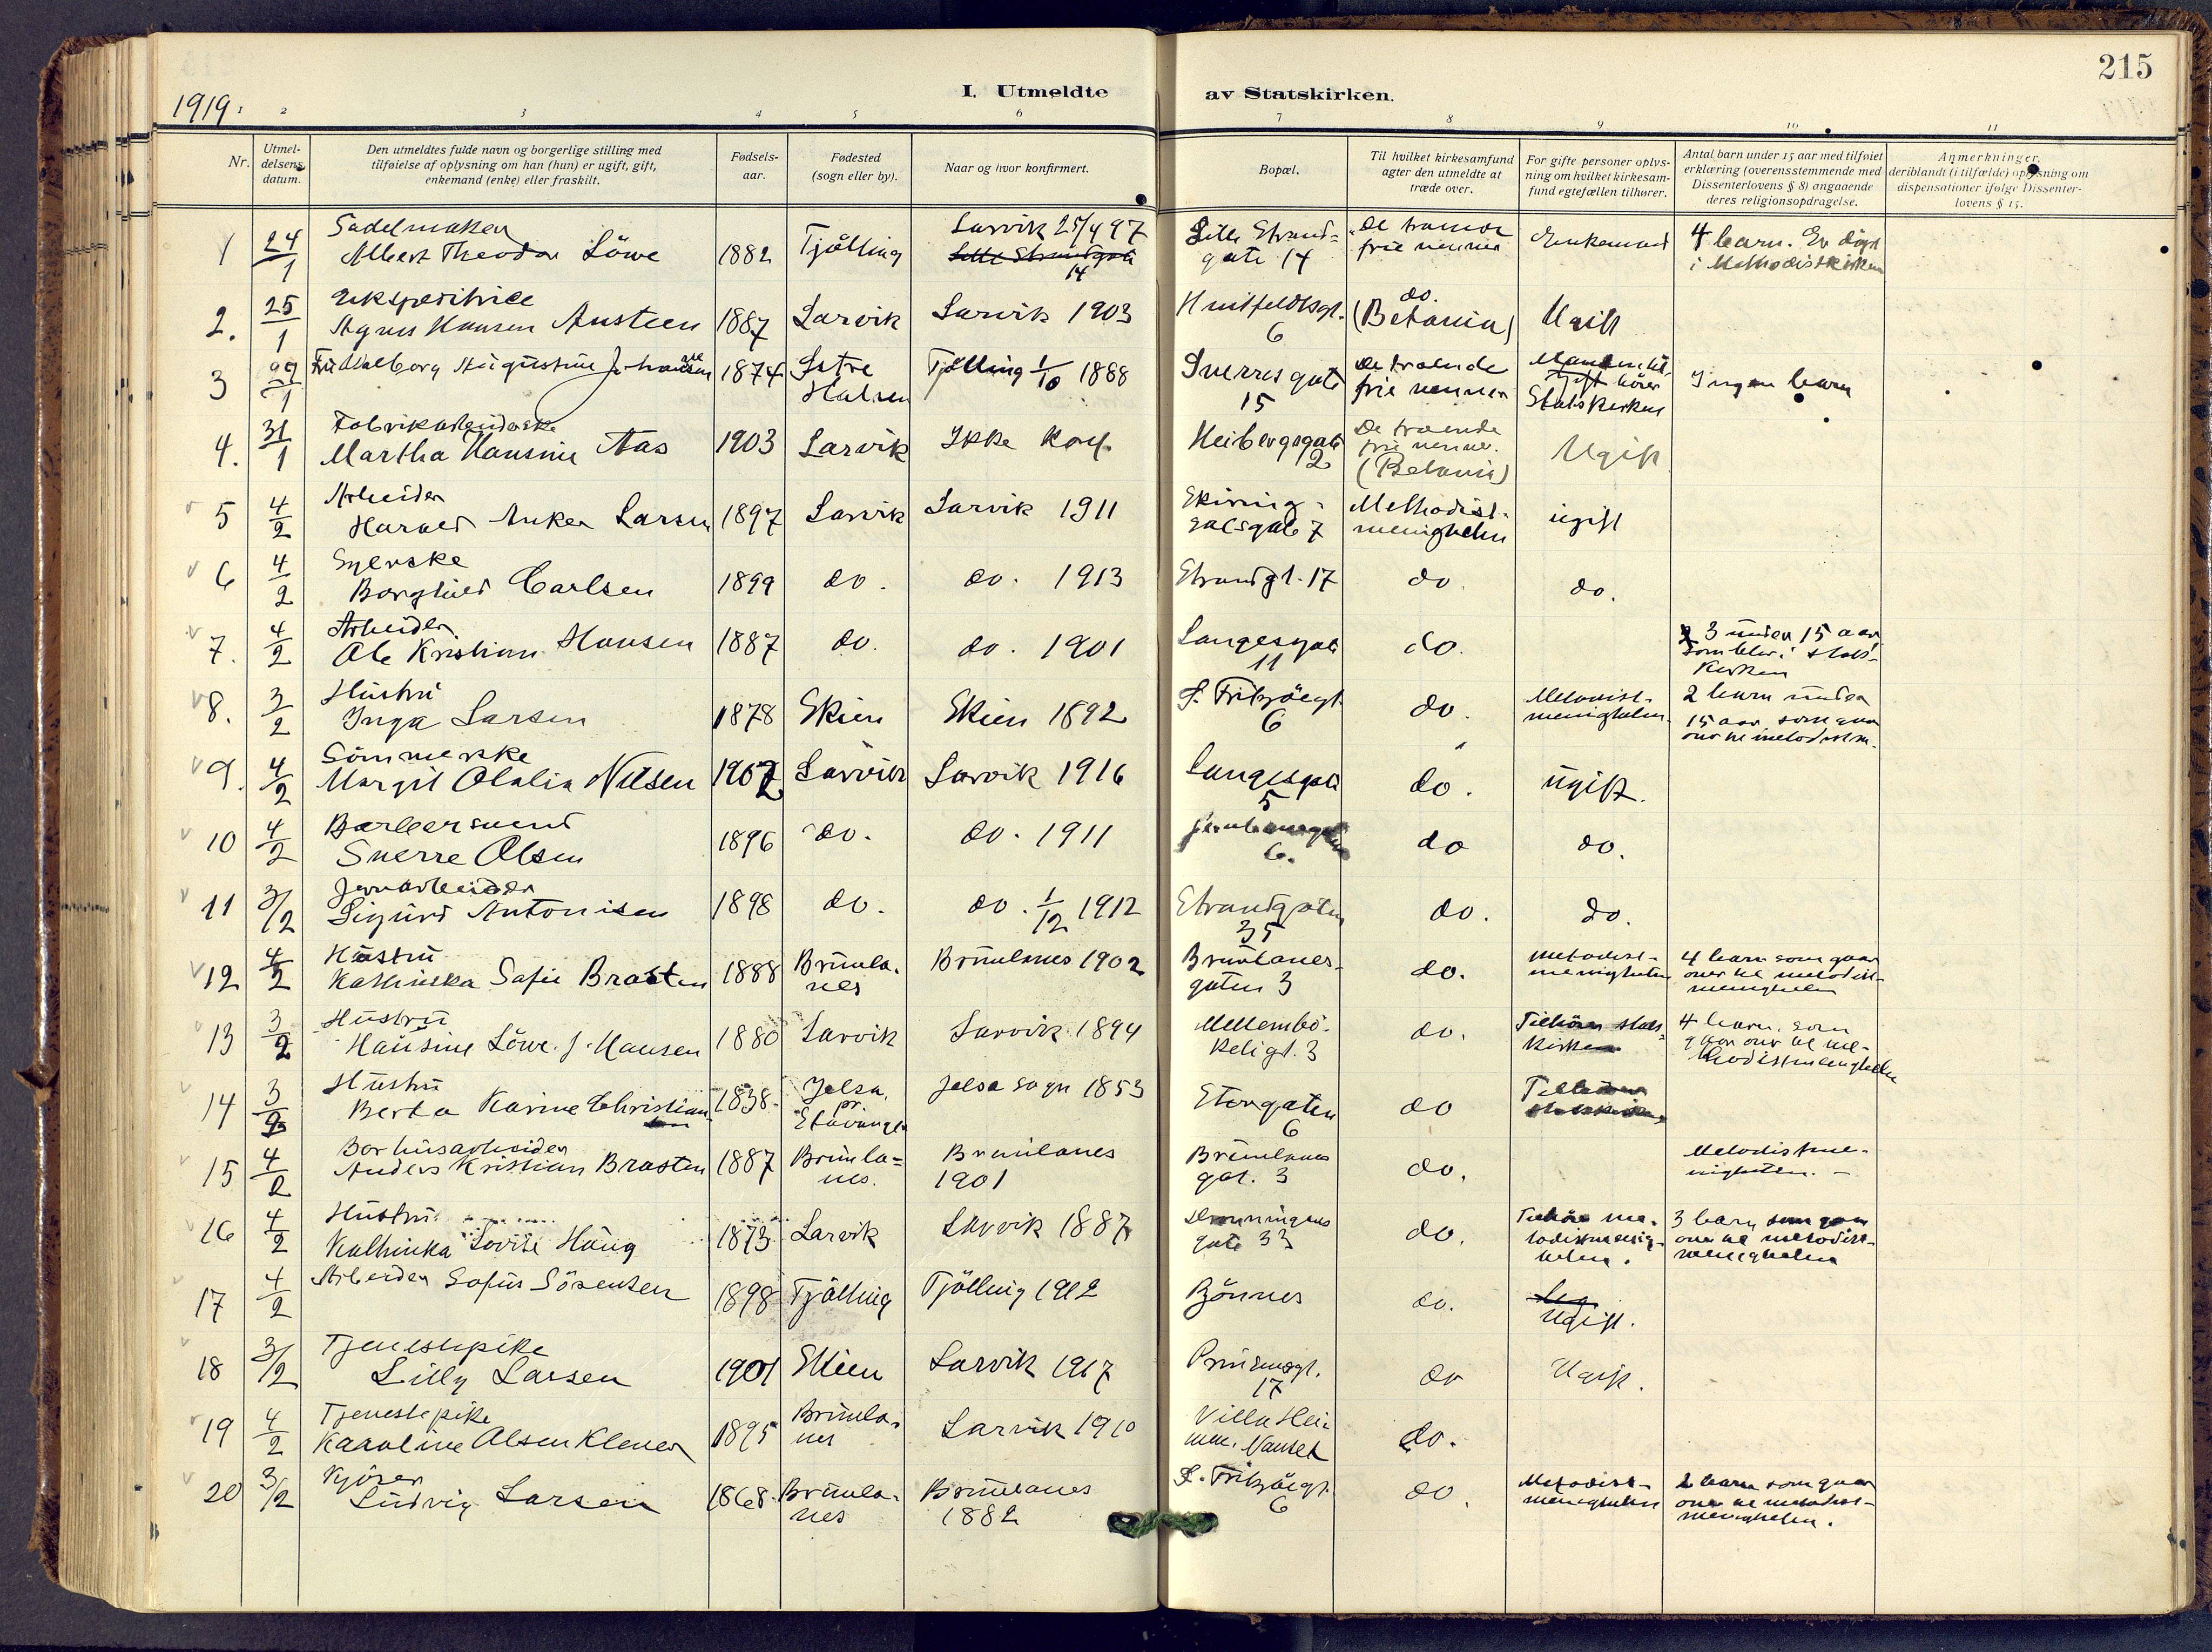 215
1919.
I. Utmeldte av Statskirken.
1 2 3 4 5 6 7 8 9 10 11
Nr.
Utmel-
delsens
datum.
Den utmeldtes fulde navn og borgerlige stilling med
tilføielse af oplysning om han (hun) er ugift, gift,
enkemand (enke) eller fraskilt.
Fødsels-
aar.
Fødested
(sogn eller by).
Naar og hvor konfirmert.
Bopæl.
Til hvilket kirkesamfund
agter den utmeldte at
træde over.
For gifte personer oplys-
ning om hvilket kirkesam-
fund egtefællen tilhører.
Antal barn under 15 aar med tilføiet
erklæring (overensstemmende med
Dissenterlovens § 8) angaaende
deres religionsopdragelse.
Anmerkninger,
deriblandt (i tilfælde) oplysning om
dispensationer ifølge Dissenter-
lovens § 15.
1 24/1 Sadelmaker Albert Theodor Löwe 1882 Tjölling Larvik 25/4 97 Lille Strand=gate 14 De troende frie venner Enkemand 4 barn. Er døpt i Methodistkirken
2. 25/1 Ekspeditrice Agnes Hansen Austeen 1887 Larvik Larvik 1903 Huitfeldtsgt. 6 do. (Betania) Ugift
3 Fru Valborg Augustine Johansen 1874 Østre Halsen Tjølling 1/10 1888 Sverres gate 15 De troende frie venner Statskirken Ingen barn
4. 31/1 Fabrikarbeiderske Martha Hansine Aas 1903 Larvik Ikke konf. Heibergsgate 2 De troende frie venner. (Betania) Ugift
5 4/2 Arbeider Harald Anker Larsen 1897 Larvik Larvik 1911 Skiring-salsgate 7 Methodist-menigheten ugift
6 4/2 Syerske Borghild Carlsen 1899 do. do. 1913 Strandgt. 17 do. do.
7. 4/2 Arbeider Ole Kristian Hansen 1887 do. do. 1901 Langesgate 11 do. 3 under 15 aar som blir i stats-kirken
8. 3/2 Hustru Inga Larsen 1878 Skien Skien 1892 S. Fritzöegt. 6 do. Metodist-menigheten 2 barn under 15 aar som gaar over til metodistm.
9. 4/2 Sömmerske Margit Olalia Nilsen 1902 Larvik Larvik 1916 Langesgate 5 do. ugift.
10 4/2 Barbersvend Sverre Olsen 1896 do. do. 1911 6. do do.
11 3/2 Jernarbeider Sigurd Antonisen 1898 do. do. 1/12 1912 Strandgaten 35 do. do.
12 4/2 Hustru Kathinka Sofie Braaten 1888 Brunla-nes Brunlanes 1902 Brunlanes-gaten 3 do. Metodist-menigheten 4 barn som gaar over til metodist-menigheten
13 3/2 Hustru Hansine Löwe f. Hansen 1880 Larvik Larvik 1894 Mellembö-keligt. 3 do. Tilhörer stats-kirken 4 barn som gaar over til me-thodistmenigheten
14 3/2 Hustru Berta Karine Christian 1838 Jelsa, pr. Stavanger Jelsa sogn 1853 Storgaten 6 do
15 4/2 Anders Kristian Braaten 1887 Brunla=nes. Brunlanes 1901 Brunlanes gat. 3 do. Metodistme-nigheten. -
16 4/2 Hustru Kathinka Lovise Haug 1873 Larvik Larvik 1887 Dronningens gate 33 do. Tilhörer me-todistmenig-heten. 3 barn som gaar over til metodist-menigheten
17 4/2 Arbeider Sofus Sörensen 1898 Tjölling Tjölling 1912 Bjönnes do. Ugift.
18 3/2 Tjenestepike Lilly Larsen 1901 Skien Larvik 1917 Prinsensgt. 17 do Ugift.
19 4/2 Tjenestepike Karoline Olsen Klever 1895 Brunla-nes Larvik 1910 Villa Hei-men, Nanset do.
20 3/2 Kjörer Ludvig Larsen 1868 Brunla-nes Brunlanes 1882 S. Fritzöegt. 6 do. Metodist-menigheten 2 barn som gaar over til metodist-menigheten.